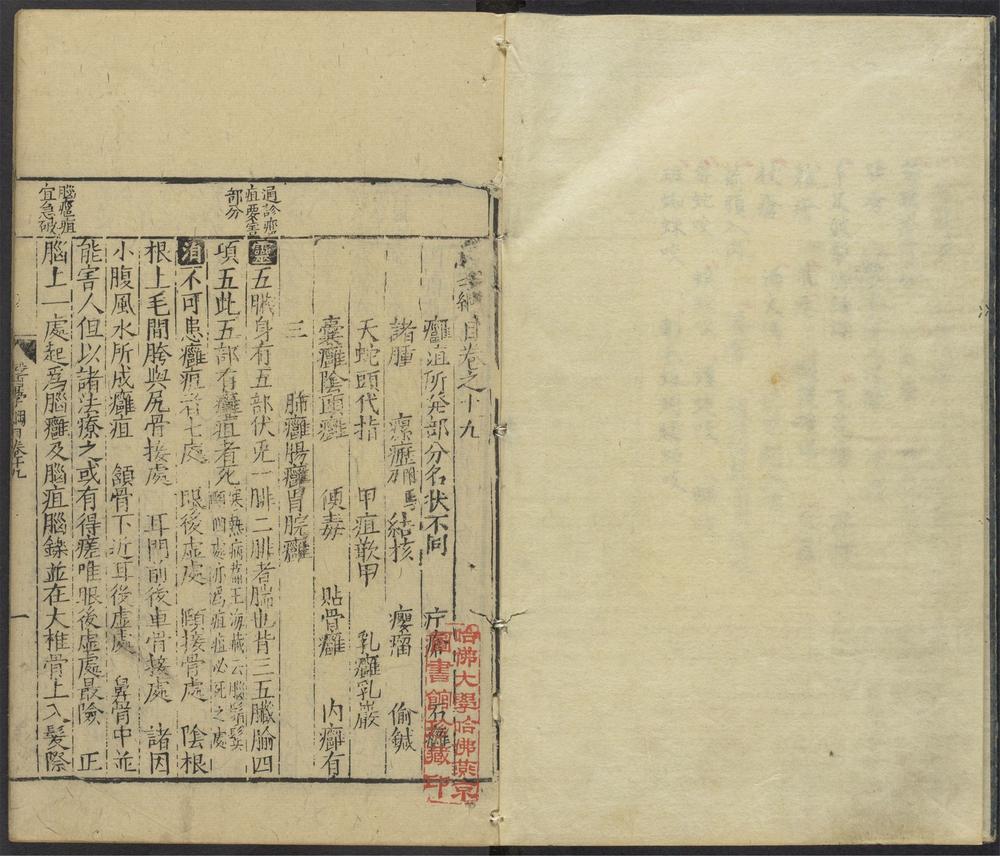 目卷之十九
癰疽所發部分名狀不同 疔瘡 石癰
諸腫 瘰癧 馬刀附 結核 癭瘤 偷鍼
天蛇頭代指 甲疽嵌甲 乳癰乳巖
囊癰陰頭癰 便毒 貼骨癰 內癰有
三 肺癰腸癰胃脘癰
過診癰
疽要害
部分
靈五臟身有五部伏兎一腓二腓者腨也背三五臟腧四
項五此五部有癰疽者死 寒熱病篇王海藏云腦鬚鬢
頤四處亦爲疽疽必死之處
涓不可患癰疽者七處 眼後虛處 頤接骨處 陰根
根上毛間胯與尻骨接處 耳門前後車骨接處 諸因
小腹風水所成癰疽 頷骨下近耳後虛處 鼻骨中並
能害人但以諸法療之或有得瘥唯眼後虛處最險 正
腦癰疽
宜急破
腦上一處起爲腦癰及腦疽腦鑠並在大椎骨上入髮際
醫學綱目卷十九
一
哈佛大學哈佛燕京
圖書館珍藏印